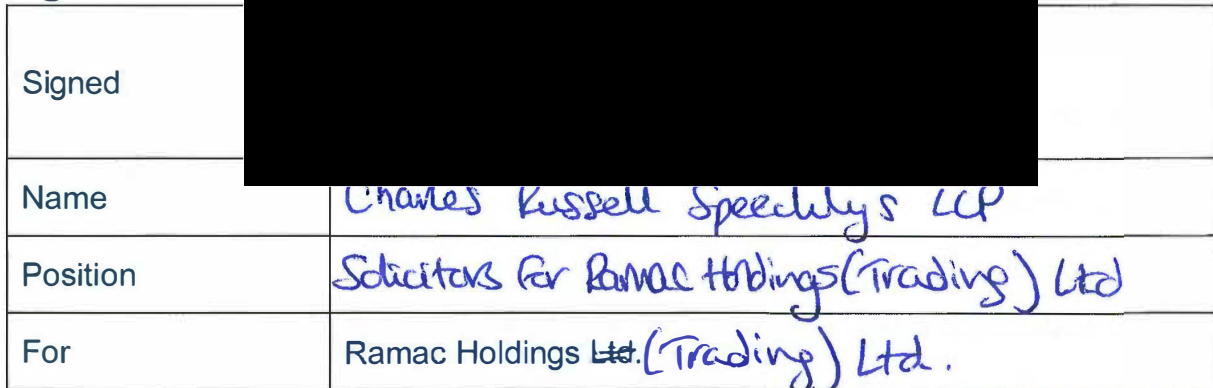 Signed
Name Charles Russell Speechlys LLP
Position Solicitors for Ramac Holdings (Trading) Ltd
For Ramac Holdings Ltd. (Trading) Ltd.